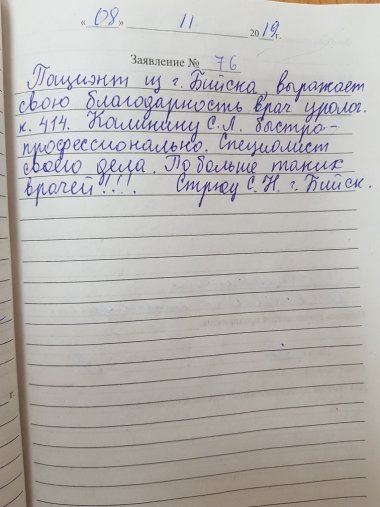 « 08 » 11 2019 г.
Заявление № 76
Пациэнт из г. Бийска, выражает
свою благодарность врач уролог.
к. 414. Калинину С.Л. быстро-
профессионально. Специолист
своего дела. Побольше таких
врачей!!!! Стрюу С.Н. г. Бийск.
г.